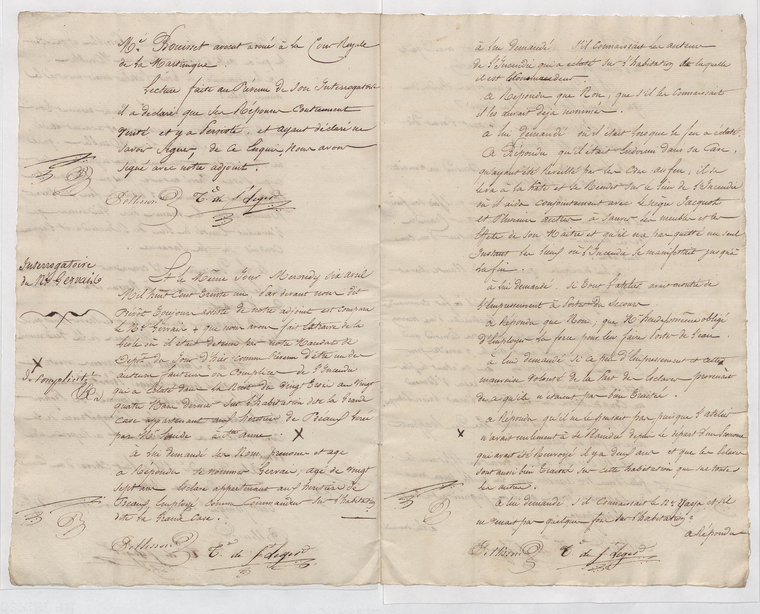 Me. Bouisset avocat avoué à la Cour Royale
de la Martinique.
Lecture faite au Prévenu de son Interrogatoire
il a déclaré que ses Réponses Contiennent
vérité et y a Persisté, et ayant déclaré ne
savoir signer, de ce requis, nous avons
signé avec notre adjoint.
T. de St Leger
Interrogatoire
du N. Gervais
Et le Même Jour Mercredy Six avril
Mil huit Cent Trente un Par devant nous dit
assisté de notre adjoint est comparu
le N. Gervais + que nous avons fait extraire de la
Geole où il était détenu par notre Mandat de
Depot du Jour d'hier comme Prévenu d'être un des
auteurs fauteurs ou Complices de l'Incendie
qui a éclaté dans la Nuit du Vingt trois au Vingt
quatre Mars dernier sur l'habitation dite la Grand
Case appartenant aux héritiers de
par Mr à Ste Anne. X
X
de Complicité
à lui demandé ses Nom prenoms et age
a Répondu se nommer Gervais, agé de Vingt
sept ans Esclave appartenant aux heritiers de
Employé comme Commandeur sur l'habitation
dite la Grand Case.
T. de St Leger
à lui demandé s'il Connaissait les auteurs
de l'Incendie qui a éclaté sur l'habitation de laquelle
il est Commandeur.
a Répondu que Non, que s'il les Connaissait
il les aurait déjà nommés.
à lui demandé où il était lorsque le feu a éclaté
a Répondu qu'il était Endormi dans sa Case,
qu'ayant été Réveillé par les Cris au feu, il se
leva à la hâte et se Rendit sur le lieu de l'Incendie
où il aida conjointement avec le nègre Jacquot
et Plusieurs autres à Sauver les meubles et les
Effets de son Maître et qu'il n'a pas quitté un seul
Instant les lieux où l'Incendie se manifestait jusqu'à
la fin.
à lui demandé si tout l'atelier avait montré de
l'Empressement à Porter du Secours
a Répondu que Non, que Mr même obligé
d'Employer la force pour leur faire Porter de l'eau.
à lui demandé si ce peu d'Empressement et cette
mauvaise volonté de la Part des Esclaves provenait
de ce qu'ils n'étaient pas bien traités.
X
a Répondu qu'il ne le pensait pas puisque l'atelier
n'avait nullement à se Plaindre depuis le départ d'un Econome
qui avait été Renvoyé il y a deux ans et que les Esclaves
sont aussi bien traités sur cette habitation que sur toutes
les autres.
à lui demandé s'il Connaissait le N. et s'il
ne venait pas quelque fois sur l'habitation
a Répondu
T. de St Leger